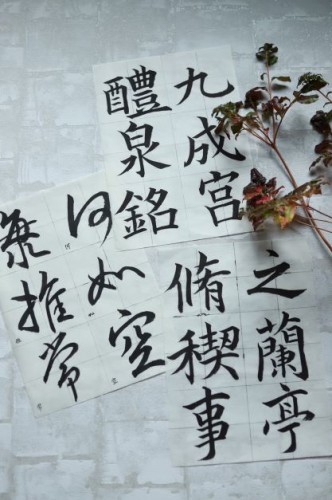 九成宮
醴泉銘
之蘭亭
脩稧事
何如空
推常